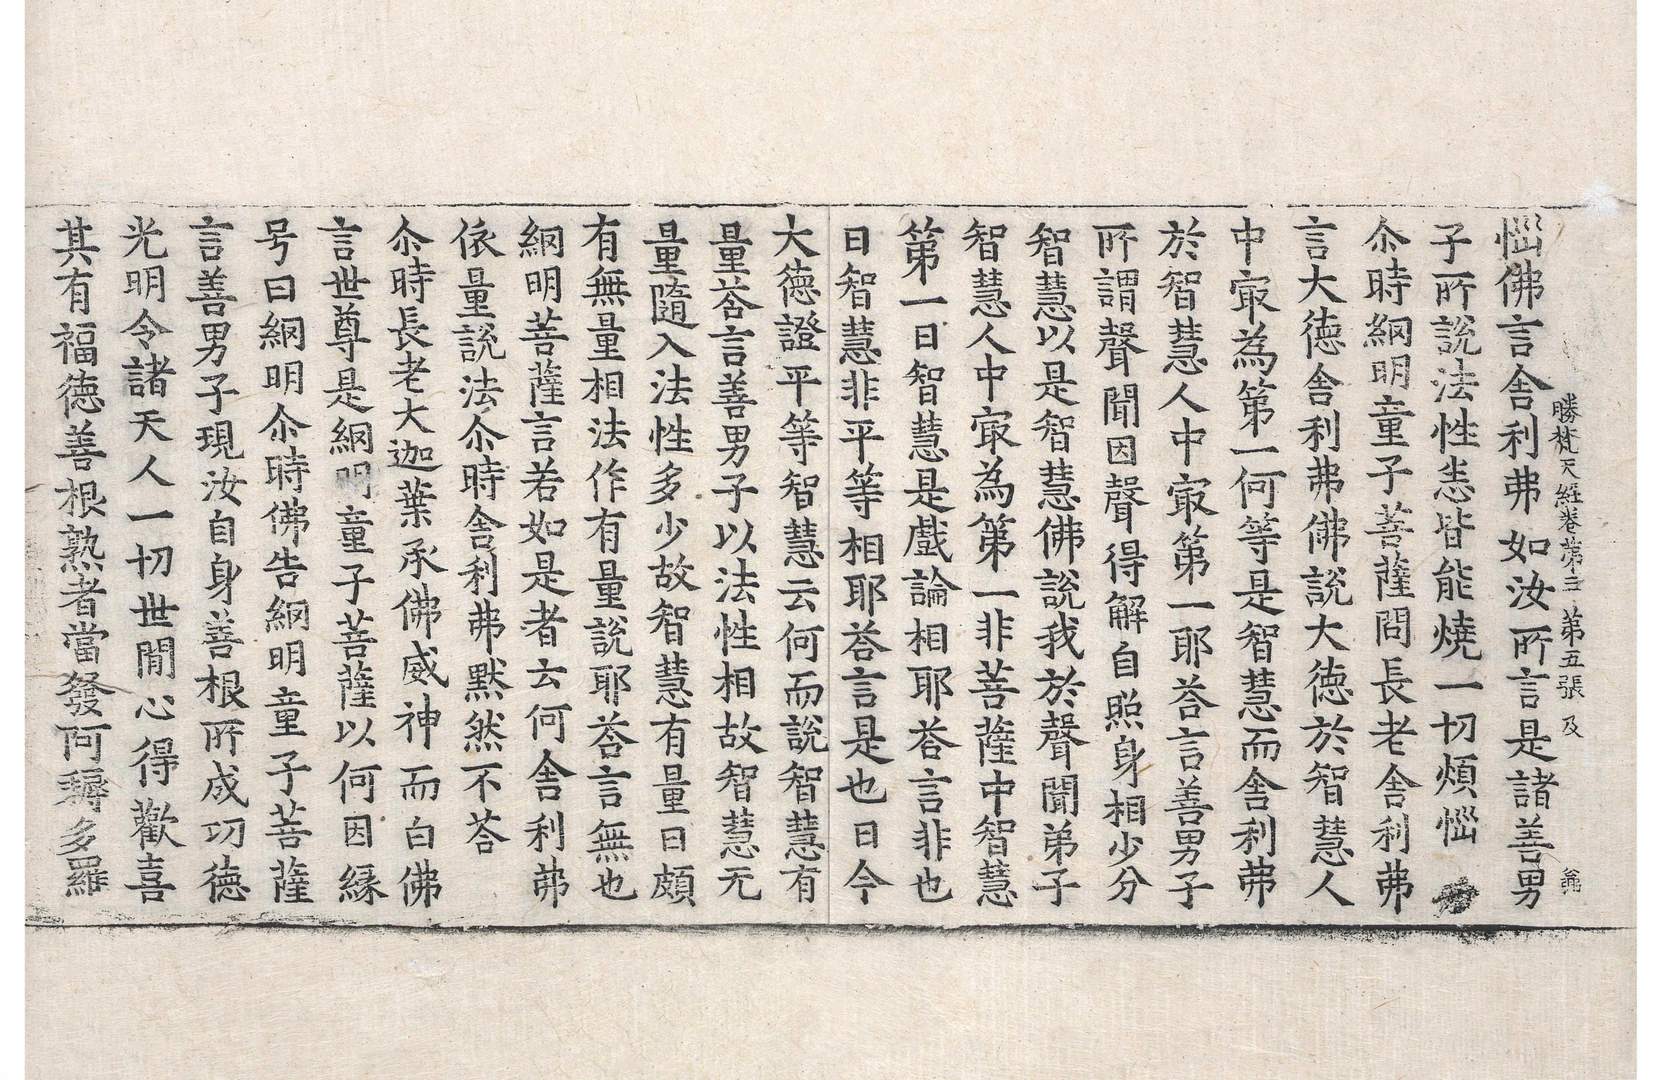 勝梵天經卷第三 第五張 及
惱佛言舍利弗如汝所言是諸善男
子所說法性悉皆能燒一切煩惱
尒時網明童子菩薩問長老舍利弗
言大德舍利弗佛說大德於智慧人
中㝡為第一何等是智慧而舍利弗
於智慧人中㝡第一耶荅言善男子
所謂聲聞因聲得解自照身相少分
智慧以是智慧佛說我於聲聞弟子
智慧人中㝡為第一非菩薩中智慧
第一曰智慧是戲論相耶荅言非也
曰智慧非平等相耶荅言是也曰今
大德證平等智慧云何而說智慧有
量荅言善男子以法性相故智慧无
量隨入法性多少故智慧有量曰頗
有無量相法作有量說耶荅言無也
網明菩薩言若如是者云何舍利弗
依量說法尒時舍利弗默然不荅
尒時長老大迦葉承佛威神而白佛
言世尊是網明童子菩薩以何因緣
号曰網明尒時佛告網明童子菩薩
言善男子現汝自身善根所成功德
光明令諸天人一切世閒心得歡喜
其有福德善根熟者當發阿耨多羅